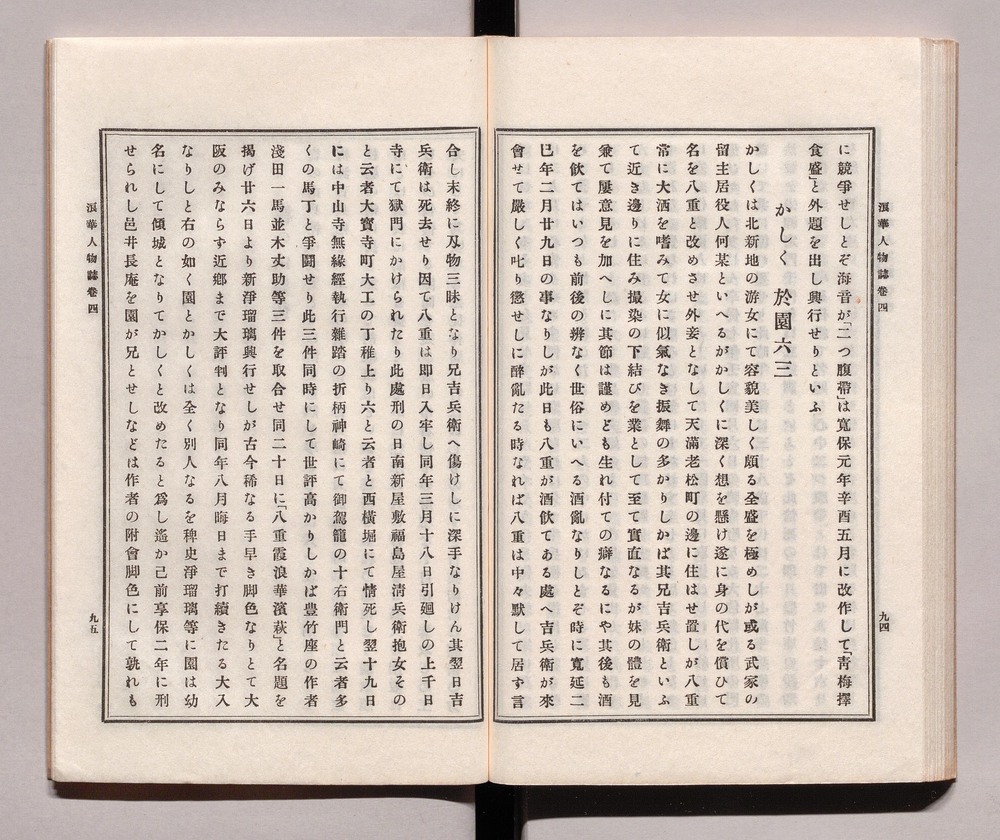 浪華人物誌卷四
九四
に競爭せしとぞ海音が「二つ腹帶」は寬保元年辛酉五月に改作して「靑梅擇
食盛」と外題を出し興行せりといふ
かしく 於園六三
かしくは北新地の游女にて容貌美しく頗る全盛を極めしが或る武家の
留主居役人何某といへるがかしくに深く想を懸け遂に身の代を償ひて
名を八重と改めさせ外妾となして天滿老松町の邊に住はせ置しが八重
常に大酒を嗜みて女に似氣なき振舞の多かりしかば其兄吉兵衛といふ
て近き邊りに住み撮染の下結びを業として至て實直なるが妹の體を見
兼て屢意見を加へしに其節は謹めども生れ付ての癖なるにや其後も酒
を飮てはいつも前後の辨なく世俗にいへる酒亂なりしとぞ時に寬延二
巳年二月廿九日の事なりしが此日も八重が酒飮てある處へ吉兵衛が來
會せて嚴しく叱り懲せしに醉亂たる時なれば八重は中々默して居ず言
合し末終に刄物三昧となり兄吉兵衛へ傷けしに深手なりけん其翌日吉
兵衛は死去せり因て八重は卽日入牢し同年三月十八日引廻しの上千日
寺にて獄門にかけられたり此處刑の日南新屋敷福島屋淸兵衛抱女その
と云者大寶寺町大工の丁稚上り六と云者と西橫堀にて情死し翌十九日
には中山寺無緣經執行雜踏の折柄神崎にて御駕籠の十右衛門と云者多
くの馬丁と爭鬪せり此三件同時にして世評高かりしかば豊竹座の作者
淺田一鳥並木丈助等三件を取合せ同二十日に「八重霞浪華濱萩」と名題を
揭げ廿六日より新淨瑠璃興行せしが古今稀なる手早き脚色なりとて大
阪のみならず近鄕まで大評判となり同年八月晦日まで打續きたる大入
なりしと右の如く園とかしくは全く別人なるを稗史淨瑠璃等に園は幼
名にして傾城となりてかしくと改めたると爲し遙か己前享保二年に刑
せられし邑井長庵を園が兄とせしなどは作者の附會脚色にして孰れも
浪華人物誌卷四
九五